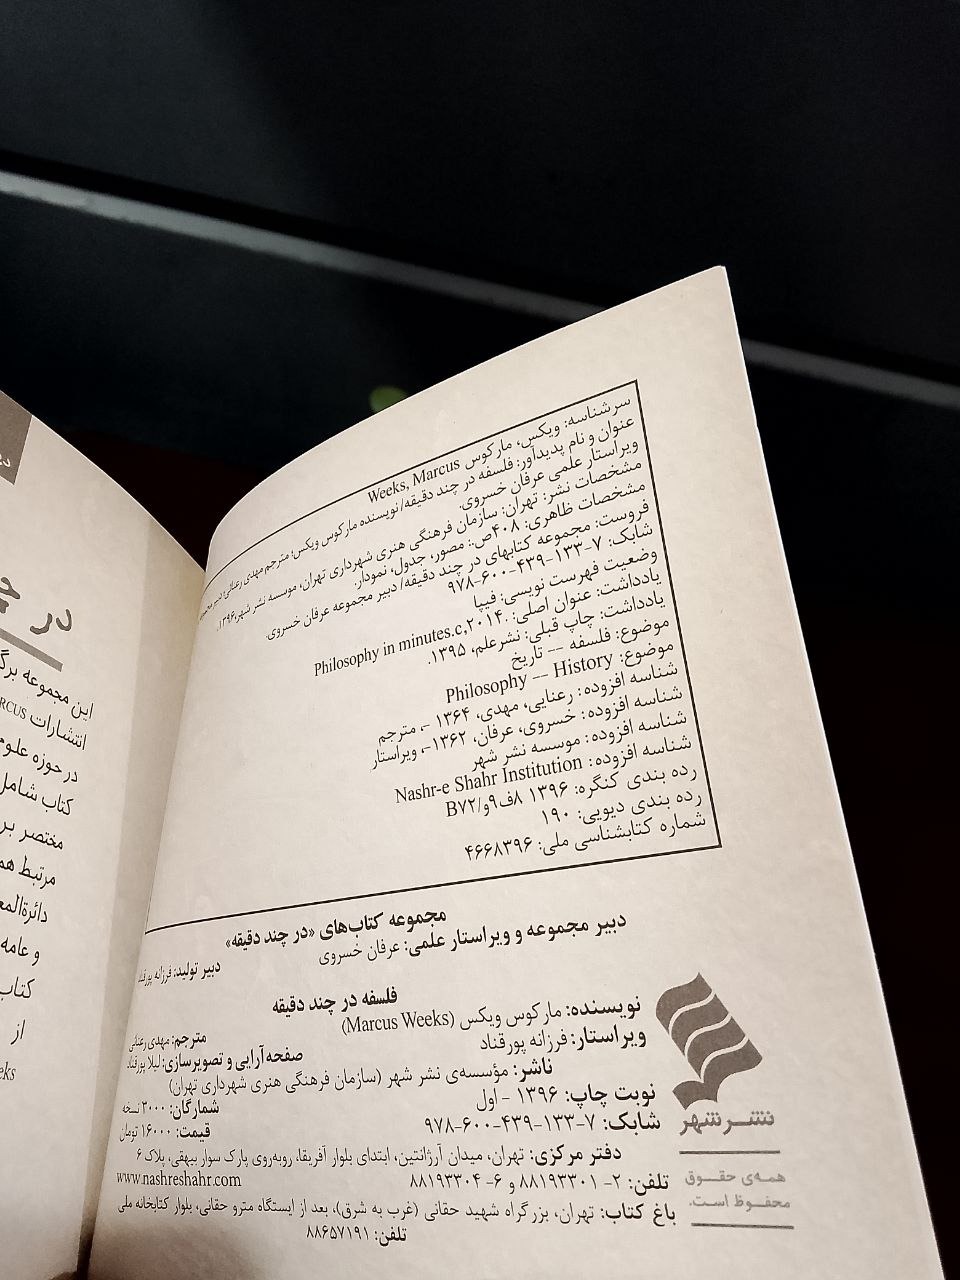 سرشناسه: ویکس، مارکوس Weeks, Marcus
عنوان و نام پدیدآور: فلسفه در چند دقیقه/ نویسنده مارکوس ویکس؛ مترجم مهدی رعنائی؛ دبیر مجموعه و
ویراستار علمی عرفان خسروی.
مشخصات نشر: تهران: سازمان فرهنگی هنری شهرداری تهران، موسسه نشر شهر، ۱۳۹۶.
مشخصات ظاهری: ۴۰۸ص: مصور، جدول، نمودار.
فروست: مجموعه کتابهای در چند دقیقه/ دبیر مجموعه عرفان خسروی.
شابک: ۷-۱۳۳-۴۳۹-۶۰۰-۹۷۸
وضعیت فهرست نویسی: فیپا
یادداشت: عنوان اصلی: .Philosophy in minutes.c,۲۰۱۴
یادداشت: چاپ قبلی: نشرعلم، ۱۳۹۵.
موضوع: فلسفه -- تاریخ
موضوع: Philosophy -- History
شناسه افزوده: رعنایی، مهدی، ۱۳۶۴ -، مترجم
شناسه افزوده: خسروی، عرفان، ۱۳۶۲-، ویراستار
شناسه افزوده: موسسه نشر شهر
شناسه افزوده: Nashr-e Shahr Institution
رده بندی کنگره: ۱۳۹۶ ۸ف۹و/B۷۲
رده بندی دیویی: ۱۹۰
شماره کتابشناسی ملی: ۴۶۶۸۳۹۶
مجموعه کتاب‌های «در چند دقیقه»
دبیر مجموعه و ویراستار علمی: عرفان خسروی
دبیر تولید: فرزانه پورقناد
فلسفه در چند دقیقه
نویسنده: مارکوس ویکس (Marcus Weeks)
مترجم: مهدی رعنائی
ویراستار: فرزانه پورقناد
صفحه‌آرایی و تصویرسازی: لیلا پورقناد
ناشر: مؤسسه‌ی نشر شهر (سازمان فرهنگی هنری شهرداری تهران)
نوبت چاپ: ۱۳۹۶ - اول
شمارگان: ۳۰۰۰ نسخه
شابک: ۷-۱۳۳-۴۳۹-۶۰۰-۹۷۸
قیمت: ۱۶۰۰۰ تومان
دفتر مرکزی: تهران، میدان آرژانتین، ابتدای بلوار آفریقا، روبه‌روی پارک سوار بیهقی، پلاک ۶
تلفن: ۲- ۸۸۱۹۳۳۰۱ و ۶- ۸۸۱۹۳۳۰۴
www.nashreshahr.com
باغ کتاب: تهران، بزرگراه شهید حقانی (غرب به شرق)، بعد از ایستگاه مترو حقانی، بلوار کتابخانه ملی
تلفن: ۸۸۶۵۷۱۹۱
نشر شهر
همه‌ی حقوق
محفوظ است.
در
این مجموعه
انتشارات
در حوزه علوم
کتاب شامل
مختصر
مرتبط
و عامه
کتاب
از